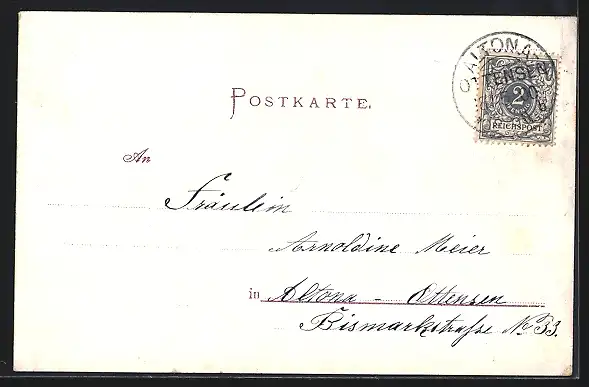 ALTONA
OTTENSEN
2
REICHSPOST
POSTKARTE.
An
Fräulein
Arnoldine Meier
in Altona - Ottensen
Bismarkstraße No 33.